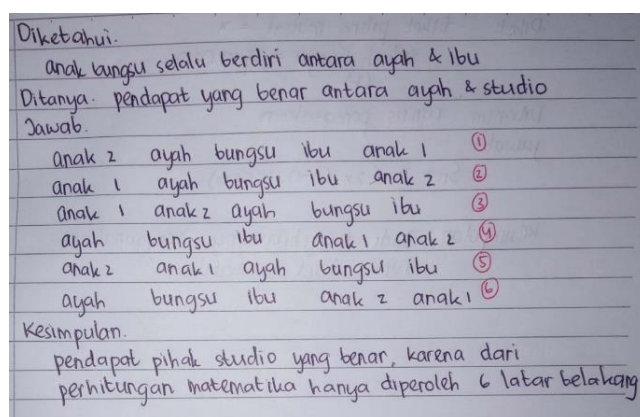 Diketahui.
anak bungsu selalu berdiri antara ayah & ibu
Ditanya. pendapat yang benar antara ayah & studio
Jawab.
anak 2 ayah bungsu ibu anak 1 ①
anak 1 ayah bungsu ibu anak 2 ②
anak 1 anak 2 ayah bungsu ibu ③
ayah bungsu ibu anak 1 anak 2 ④
anak 2 anak 1 ayah bungsu ibu ⑤
ayah bungsu ibu anak 2 anak 1 ⑥
Kesimpulan.
pendapat pihak studio yang benar, karena dari
perhitungan matematika hanya diperoleh 6 latar belakang